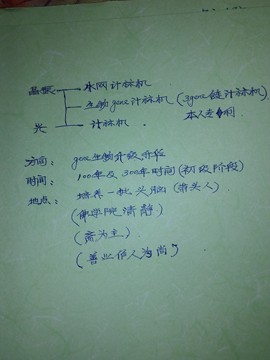 晶振 水网计标机
生物gene计标机 (3gene链计标机
光 计标机. 本人专利)
方向: gene生物升级阶段
时间: 100年及300年时间(初级阶段)
地点: 培养一批头脑(带头人)
(佛学院清静)
(斋为主)
(善业佰人为尚)